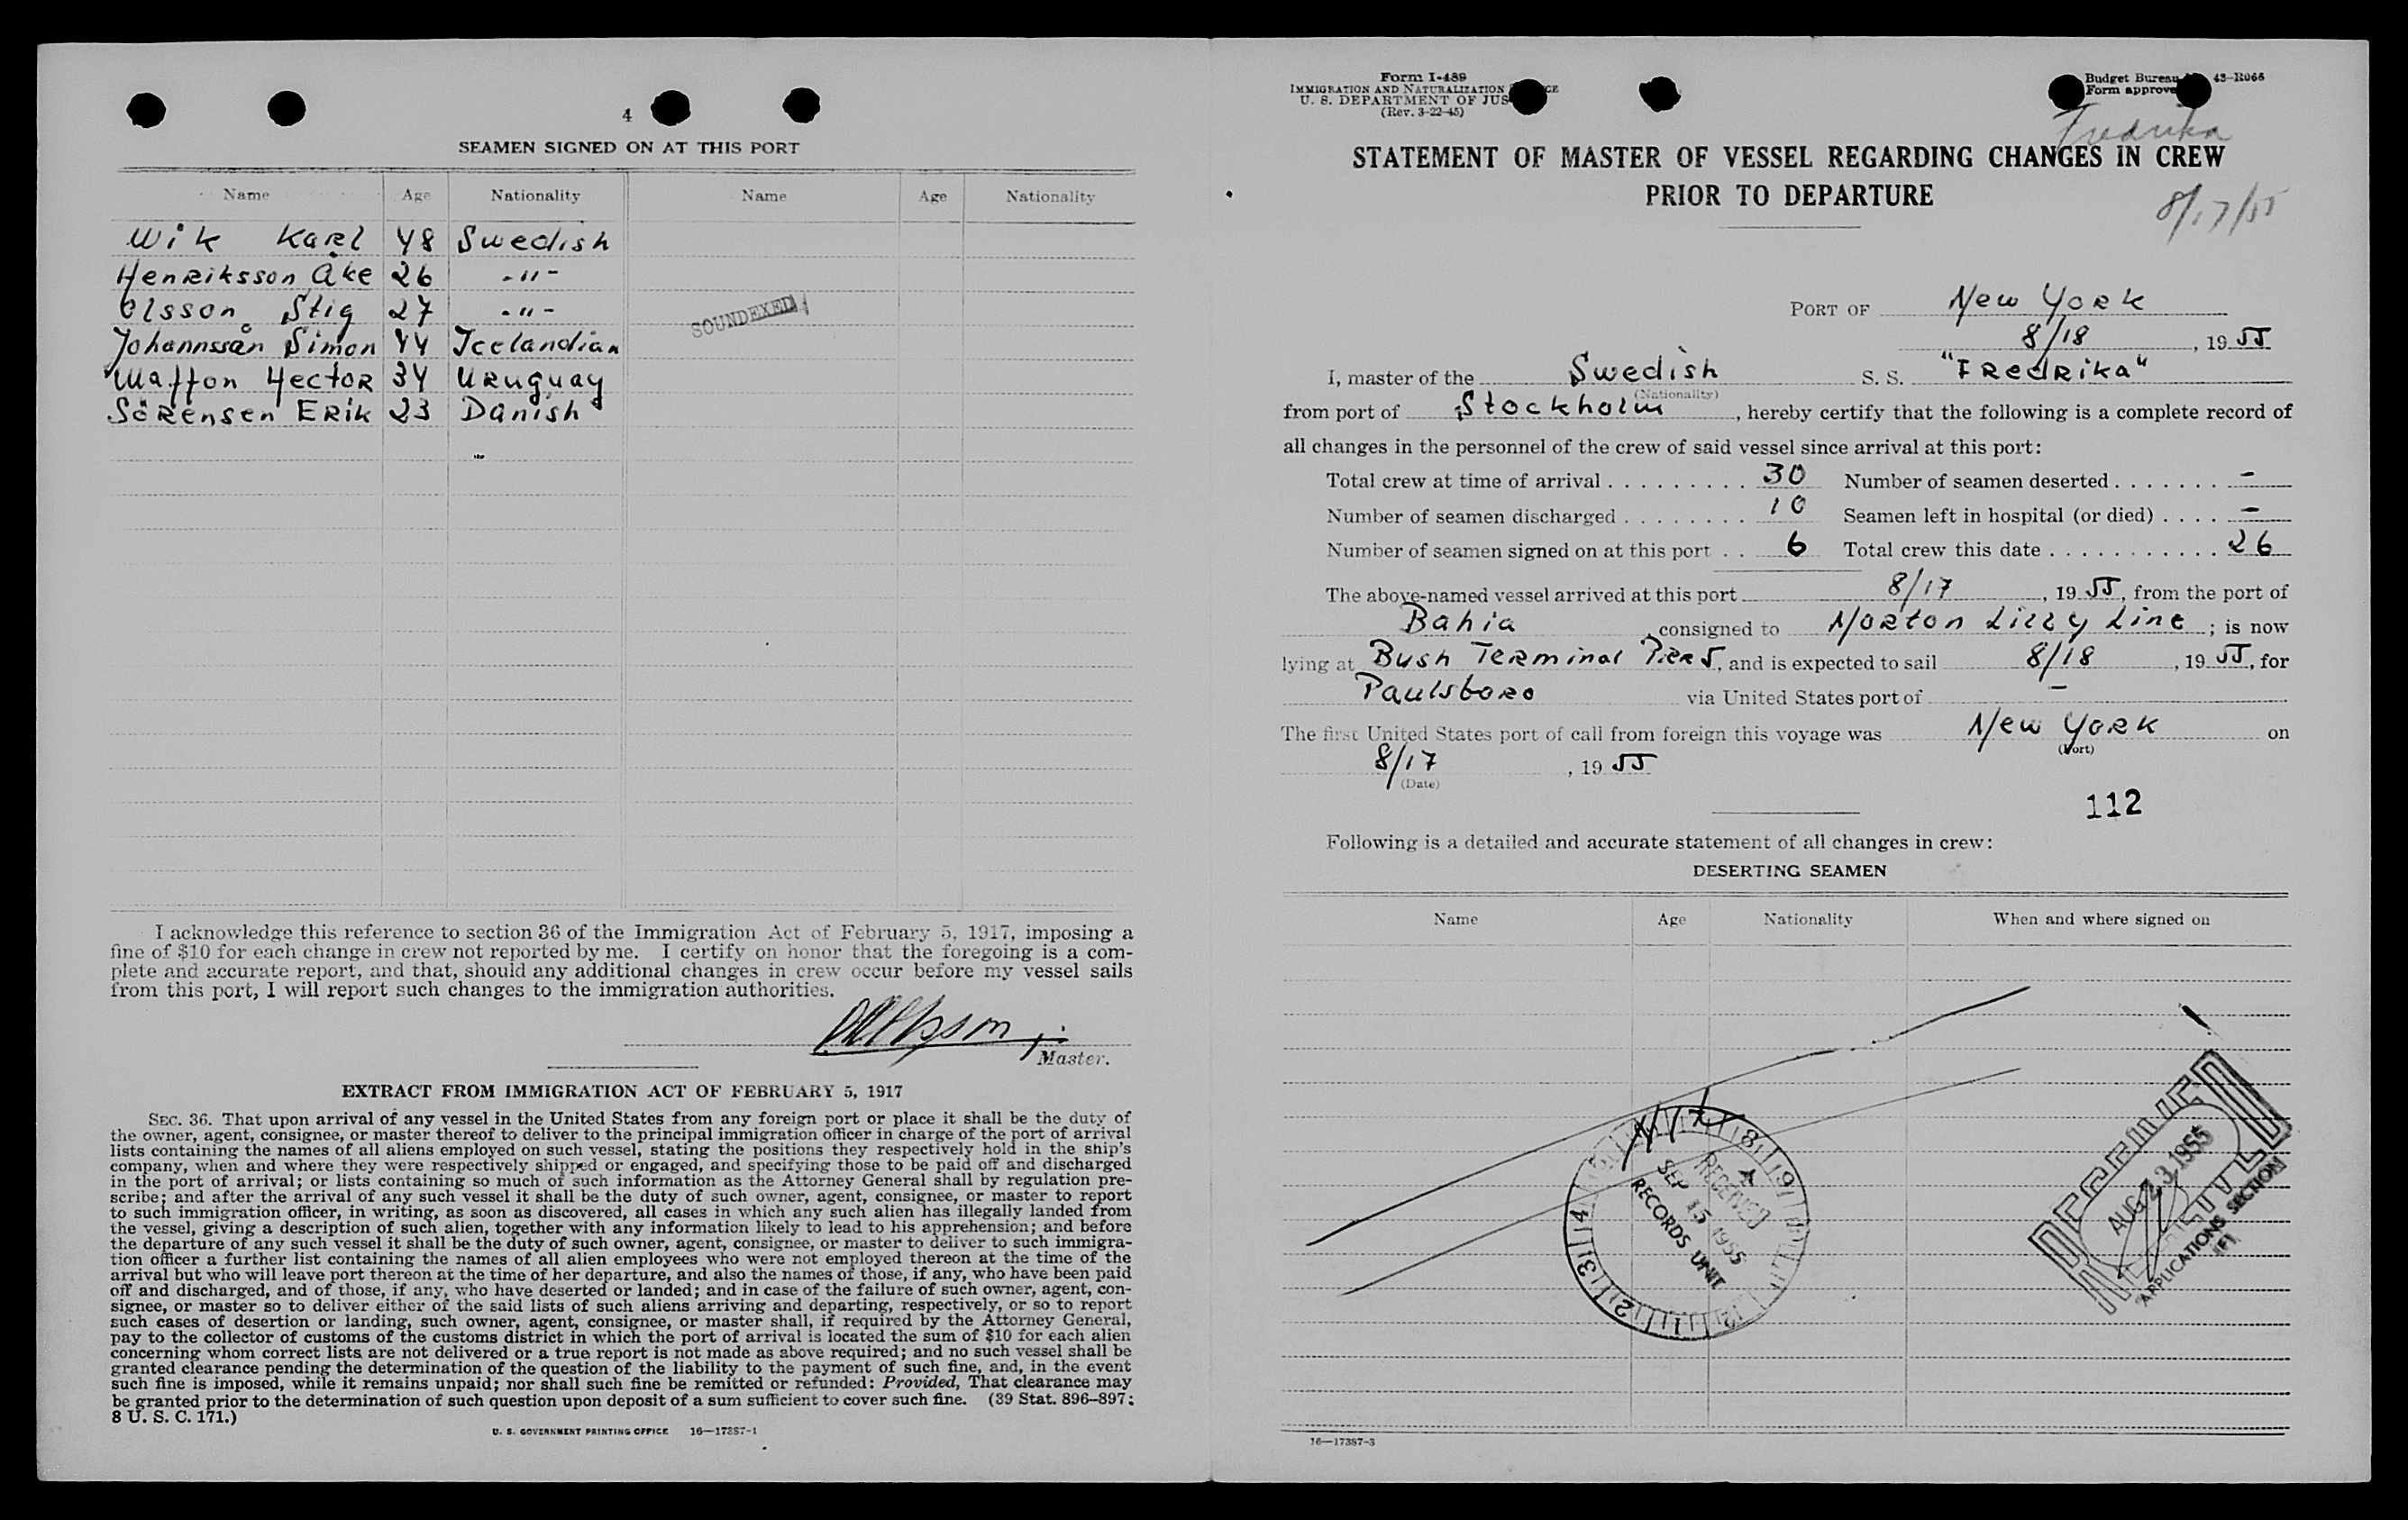 4
SEAMEN SIGNED ON AT THIS PORT
Name Age Nationality Name Age Nationality
Wik Karl 48 Swedish
Henriksson Åke 26 -"-
Olsson Stig 27 -"-
Johannssån Simon 44 Icelandian
Maffon Hector 34 Uruguay
Sörensen Erik 23 Danish
SOUNDEXED
I acknowledge this reference to section 36 of the Immigration Act of February 5, 1917, imposing a
fine of $10 for each change in crew not reported by me. I certify on honor that the foregoing is a com-
plete and accurate report, and that, should any additional changes in crew occur before my vessel sails
from this port, I will report such changes to the immigration authorities.
Master.
EXTRACT FROM IMMIGRATION ACT OF FEBRUARY 5, 1917
SEC. 36. That upon arrival of any vessel in the United States from any foreign port or place it shall be the duty of
the owner, agent, consignee, or master thereof to deliver to the principal immigration officer in charge of the port of arrival
lists containing the names of all aliens employed on such vessel, stating the positions they respectively hold in the ship's
company, when and where they were respectively shipped or engaged, and specifying those to be paid off and discharged
in the port of arrival; or lists containing so much of such information as the Attorney General shall by regulation pre-
scribe; and after the arrival of any such vessel it shall be the duty of such owner, agent, consignee, or master to report
to such immigration officer, in writing, as soon as discovered, all cases in which any such alien has illegally landed from
the vessel, giving a description of such alien, together with any information likely to lead to his apprehension; and before
the departure of any such vessel it shall be the duty of such owner, agent, consignee, or master to deliver to such immigra-
tion officer a further list containing the names of all alien employees who were not employed thereon at the time of the
arrival but who will leave port thereon at the time of her departure, and also the names of those, if any, who have been paid
off and discharged, and of those, if any, who have deserted or landed; and in case of the failure of such owner, agent, con-
signee, or master so to deliver either of the said lists of such aliens arriving and departing, respectively, or so to report
such cases of desertion or landing, such owner, agent, consignee, or master shall, if required by the Attorney General,
pay to the collector of customs of the customs district in which the port of arrival is located the sum of $10 for each alien
concerning whom correct lists are not delivered or a true report is not made as above required; and no such vessel shall be
granted clearance pending the determination of the question of the liability to the payment of such fine, and, in the event
such fine is imposed, while it remains unpaid; nor shall such fine be remitted or refunded: Provided, That clearance may
be granted prior to the determination of such question upon deposit of a sum sufficient to cover such fine. (39 Stat. 896-897;
8 U. S. C. 171.)
U. S. GOVERNMENT PRINTING OFFICE 16—17387-1
Form I-489
IMMIGRATION AND NATURALIZATION
U. S. DEPARTMENT OF JUS
(Rev. 3-22-45)
Budget Bureau 43-R066
Form approve
Fredrika
STATEMENT OF MASTER OF VESSEL REGARDING CHANGES IN CREW
PRIOR TO DEPARTURE
8/17/55
PORT OF New York
8/18, 1955
I, master of the Swedish S. S. "Fredrika"
(Nationality)
from port of Stockholm, hereby certify that the following is a complete record of
all changes in the personnel of the crew of said vessel since arrival at this port:
Total crew at time of arrival . . . . . . . . . 30 Number of seamen deserted . . . . . . . -
Number of seamen discharged . . . . . . . . 10 Seamen left in hospital (or died) . . . . -
Number of seamen signed on at this port . . 6 Total crew this date . . . . . . . . . . . 26
The above-named vessel arrived at this port 8/17, 1955, from the port of
Bahia, consigned to Norton Lilly Line; is now
lying at Bush Terminal Pier 5, and is expected to sail 8/18, 1955, for
Paulsboro via United States port of -
The first United States port of call from foreign this voyage was New York on
(Port)
8/17, 1955
(Date)
112
Following is a detailed and accurate statement of all changes in crew:
DESERTING SEAMEN
Name Age Nationality When and where signed on
RECEIVED
SEP 15 1955
RECORDS UNIT
RECEIVED
AUG 23 1955
APPLICATIONS SECTION
(F)
16—17387-3